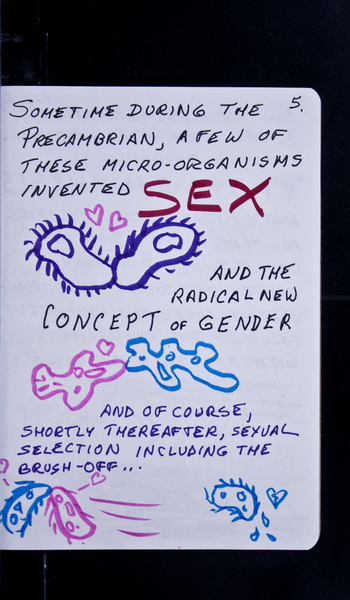 5.
SOMETIME DURING THE
PRECAMBRIAN, A FEW OF
THESE MICRO-ORGANISMS
INVENTED SEX
AND THE
RADICAL NEW
CONCEPT OF GENDER
AND OF COURSE,
SHORTLY THEREAFTER, SEXUAL
SELECTION INCLUDING THE
BRUSH-OFF...